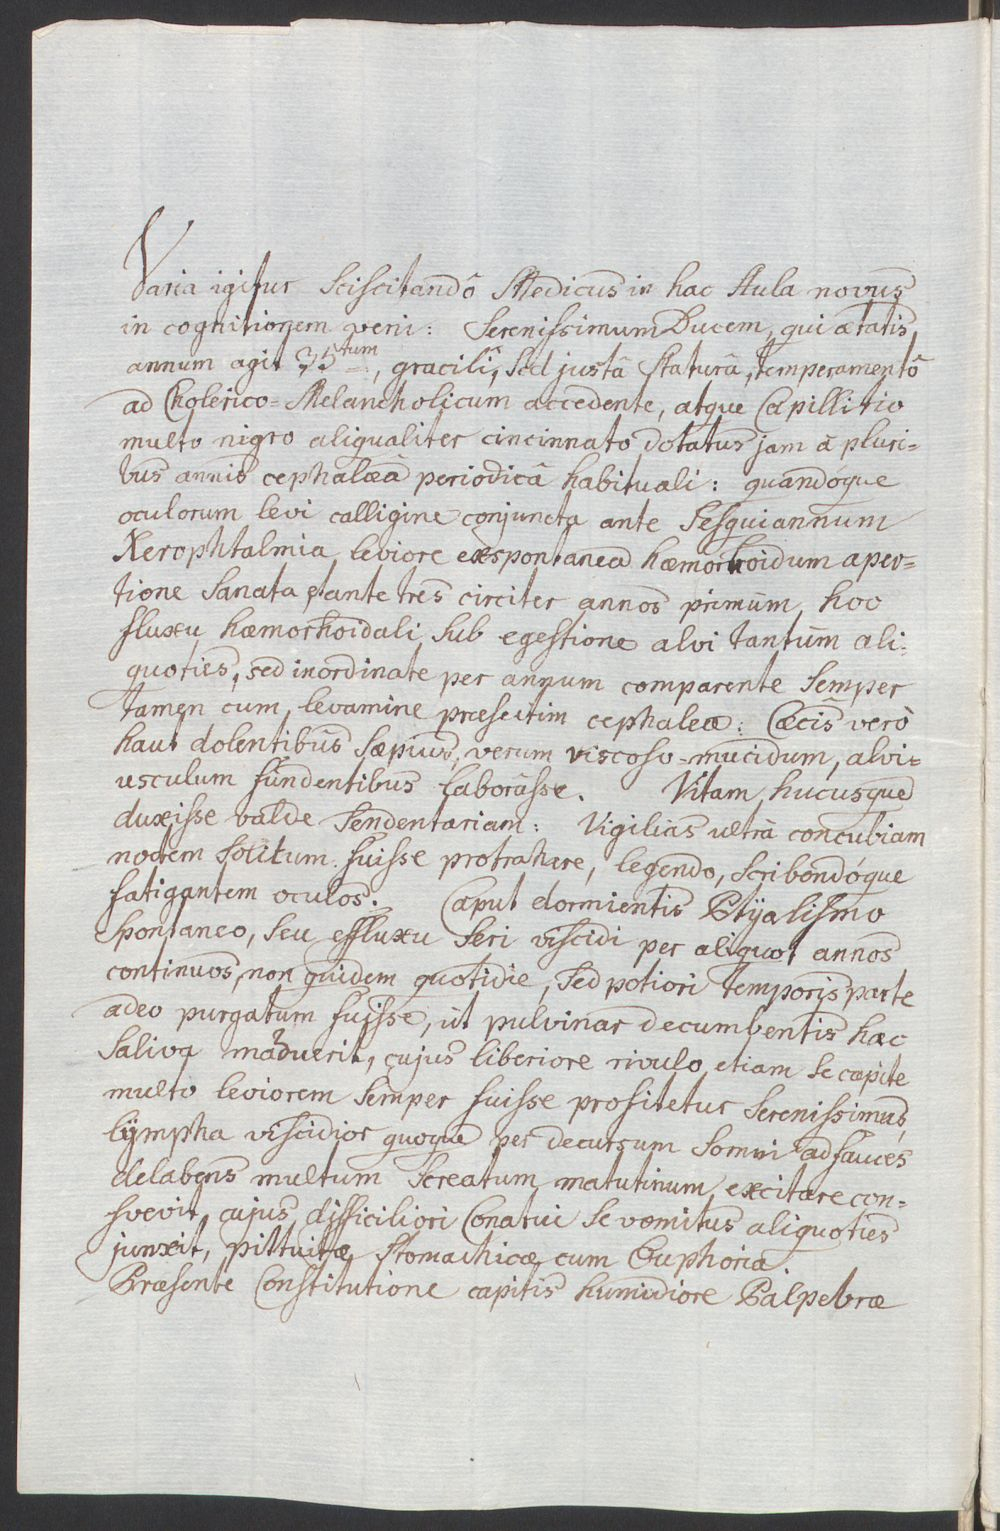 Varia igitur sciscitandô Medicus in hac Aula novus
in cognitionem veni: Serenissimum Ducem, qui ætatis
annum agit 35tum, gracili, sed justâ staturâ, temperamentô
ad Cholerico=Melancholicum accedente, atque Capillitio
multo nigro aliqualiter cincinnato dotatus jam à pluri=
bus annis cephalæâ periodicâ habituali: quandóque
oculorum levi calligine conjuncta ante Sesquiannum
Xerophtalmia leviore exspontanea hæmorrhoidum aper=
tione Sanata, & ante tres circiter annos primùm hoc
fluxu hæmorhoidali sub egestione alvi tantùm ali=
quoties, sed inordinate per annum comparente semper
tamen cum levamine præsertim cephaleæ: Cæcis verò
haut dolentibus sæpius, verum viscoso-mucidum, alvi=
usculum fundentibus laborâsse. Vitam hucusque
duxisse valde Sendentariam: Vigilias ultrà concubiam
noctem solitum fuisse protrahere, legendo, scribendóque
fatigantem oculos. Caput dormientis Ptÿalismo
Spontaneo, seu effluxu Seri viscidi per aliquot annos
continuos, non quidem quotidie, sed potiori temporis parte
adeo purgatum fuisse, ut pulvinar decumbentis hac
Saliva maduerit, cujus liberiore rivulo etiam se capite
multo leviorem semper fuisse profitetur Serenissimus,
lÿmpha viscidior quoque per decursum Somni ad fauces
delabens multum Screatum matutinum excitare con=
svevit, cujus difficiliori Conatui se vomitus aliquoties
junxit, pittuitæ stomachicæ cum Euphoria.
Præsente Constitutione capitis humidiore Palpebræ